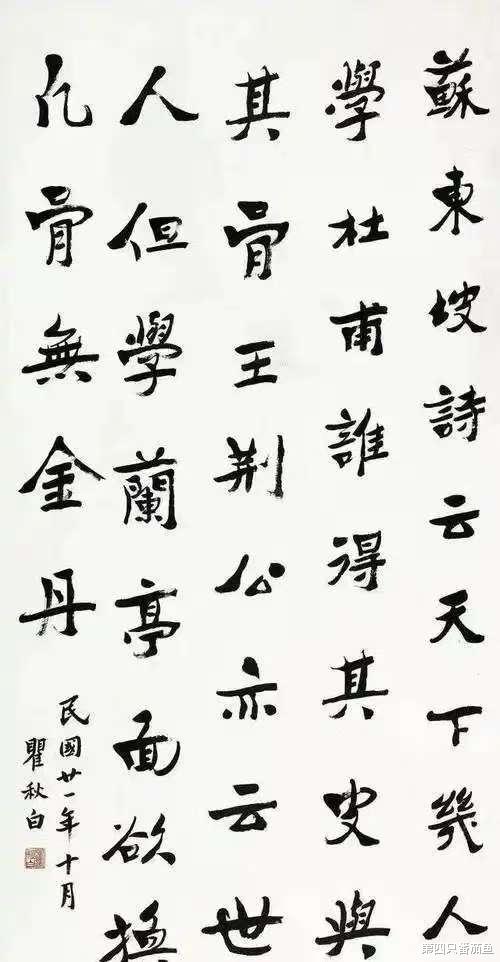 蘇東坡詩云天下幾人
學杜甫誰得其皮與
其骨王荆公亦云世
人但學蘭亭面欲換
凡骨無金丹
民國廿一年十月
瞿秋白
第四只番茄鱼